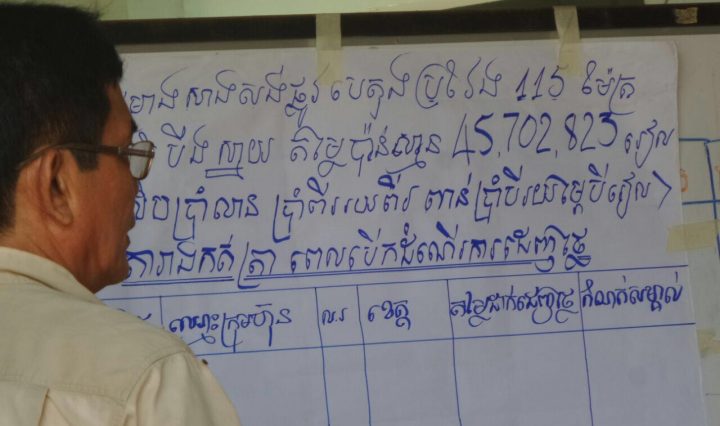 សាងសង់ផ្លូវ បេតុង ប្រវែង 115 ម៉ែត្រ
បឹងស្នាយ តម្លៃប៉ាន់ស្មាន 45,702,823 រៀល
សិបប្រាំលាន ប្រាំពីររយពីរ ពាន់ប្រាំបីរយម្ភៃបីរៀល)
តារាងកត់ត្រា ពេលបើកដំណើរការដេញថ្លៃ
ឈ្មោះក្រុមហ៊ុន លរ ខេត្ត តម្លៃដាក់ដេញថ្លៃ កំណត់សម្គាល់